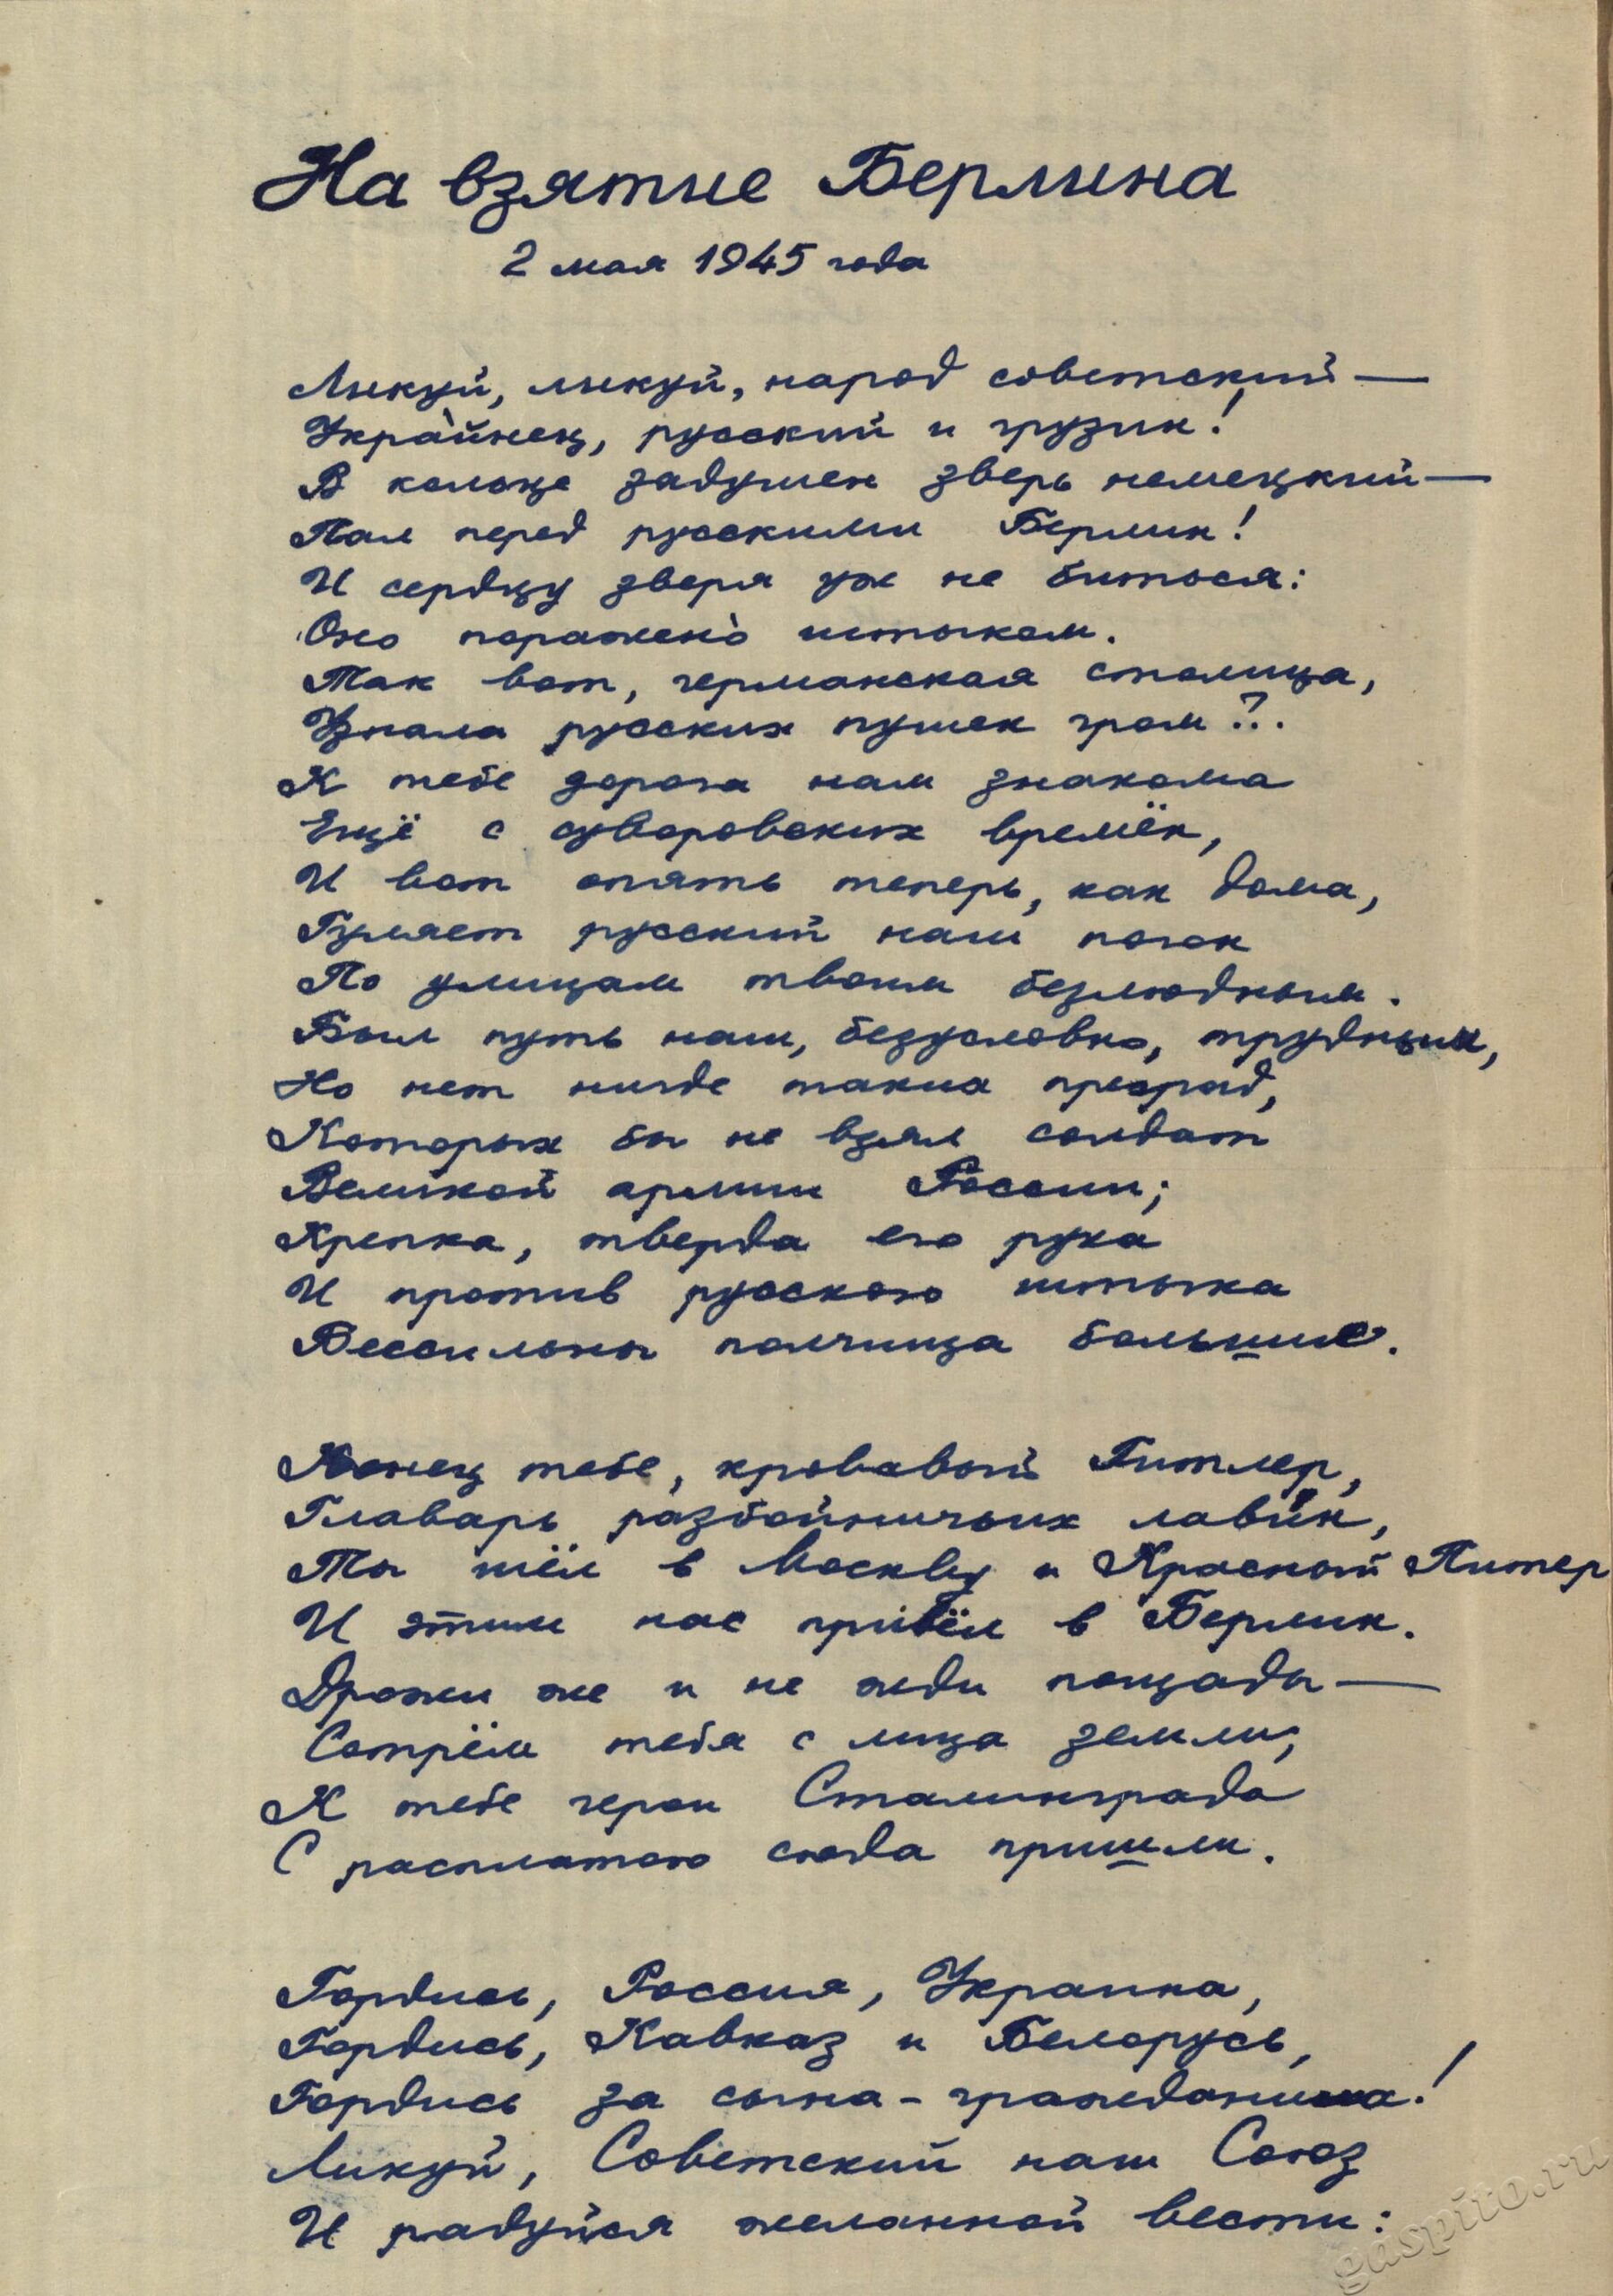 На взятие Берлина
2 мая 1945 года
Ликуй, ликуй, народ советский —
Укра́йнец, русский и грузин!
В кольце задушен зверь немецкий —
Пал перед русскими Берлин!
И сердцу зверя уж не биться:
Оно поражено́ штыком.
Так вот, германская столица,
Узнала русских пушек гром?..
К тебе дорога нам знакома
Ещё с суворовских времён,
И вот опять теперь, как дома,
Гуляет русский наш погон
По улицам твоим безлюдным.
Был путь наш, безусловно, трудным,
Но нет нигде таких преград,
Которых бы не взял солдат
Великой армии России;
Крепка, тверда его рука
И против русского штыка
Бессильны полчища большие.
Конец тебе, кровавый Гитлер,
Главарь разбойничьих лавин,
Ты шёл в Москву и Красный Питер
И этим нас привёл в Берлин.
Дрожи же и не жди пощады —
Сотрём тебя с лица земли;
К тебе герои Сталинграда
С расплатою сюда пришли.
Гордись, Россия, Украина,
Гордись, Кавказ и Белорусь,
Гордись за сына-гражданина!
Ликуй, Советский наш Союз
И радуйся желанной вести:
gaspito.ru